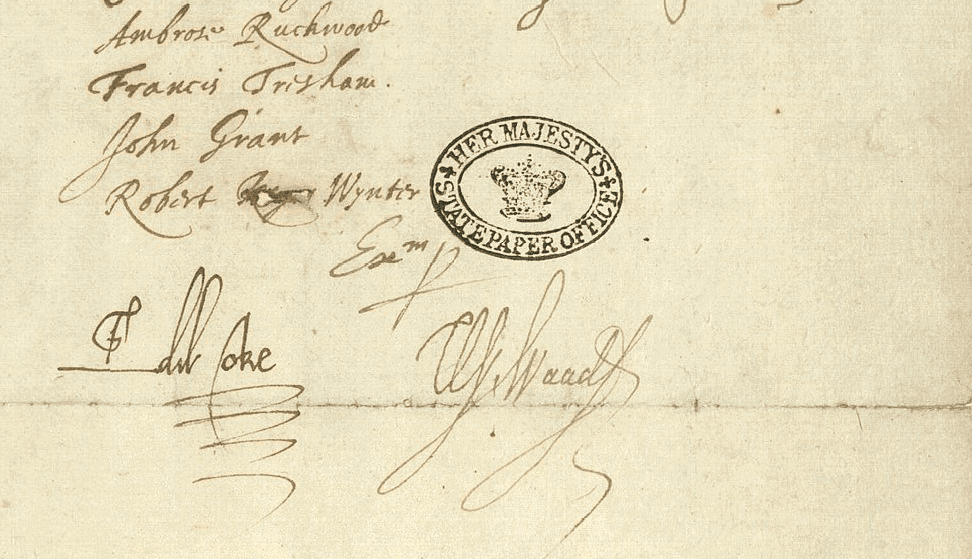 Ambrose Ruckwood
Francis Tresham.
John Grant
Robert Wynter
HER MAJESTY'S
STATE PAPER OFFICE
Exm p
Edw Coke
W. Waad